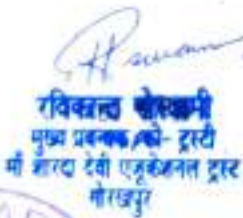 रविकान्त गोस्वामी
मुख्य प्रबन्धक/को- ट्रस्टी
माँ शारदा देवी एजूकेशनल ट्रस्ट
गोरखपुर